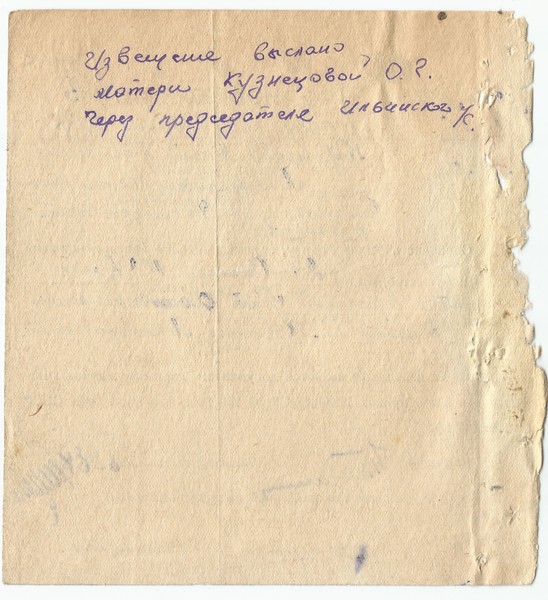 Извещение выслано
матери Кузнецовой О. Г.
через председателя Ильинского с/с.